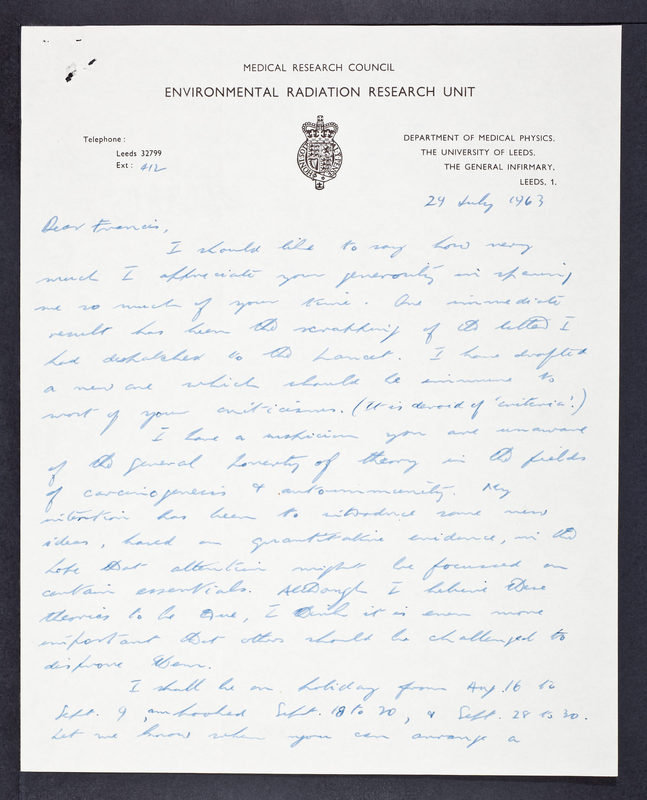 MEDICAL RESEARCH COUNCIL
ENVIRONMENTAL RADIATION RESEARCH UNIT
Telephone:
Leeds 32799
Ext: 412
DEPARTMENT OF MEDICAL PHYSICS,
THE UNIVERSITY OF LEEDS,
THE GENERAL INFIRMARY,
LEEDS, 1.
29 July 1963
Dear Francis,
I should like to say how very
much I appreciate your generosity in sparing
me so much of your time. One immediate
result has been the scrapping of the letter I
had despatched to the Lancet. I have drafted
a new one which should be immune to
most of your criticisms. (It is devoid of 'criteria'.)
I have a suspicion you are unaware
of the general poverty of theory in the fields
of carcinogenesis & autoimmunity. My
intention has been to introduce some new
ideas, based on quantitative evidence, in the
hope that attention might be focussed on
certain essentials. Although I believe these
theories to be true, I think it is even more
important that others should be challenged to
disprove them.
I shall be on holiday from Aug. 16 to
Sept. 9, Sept. 18 to 20, & Sept. 28 to 30.
Let me know when you can arrange a